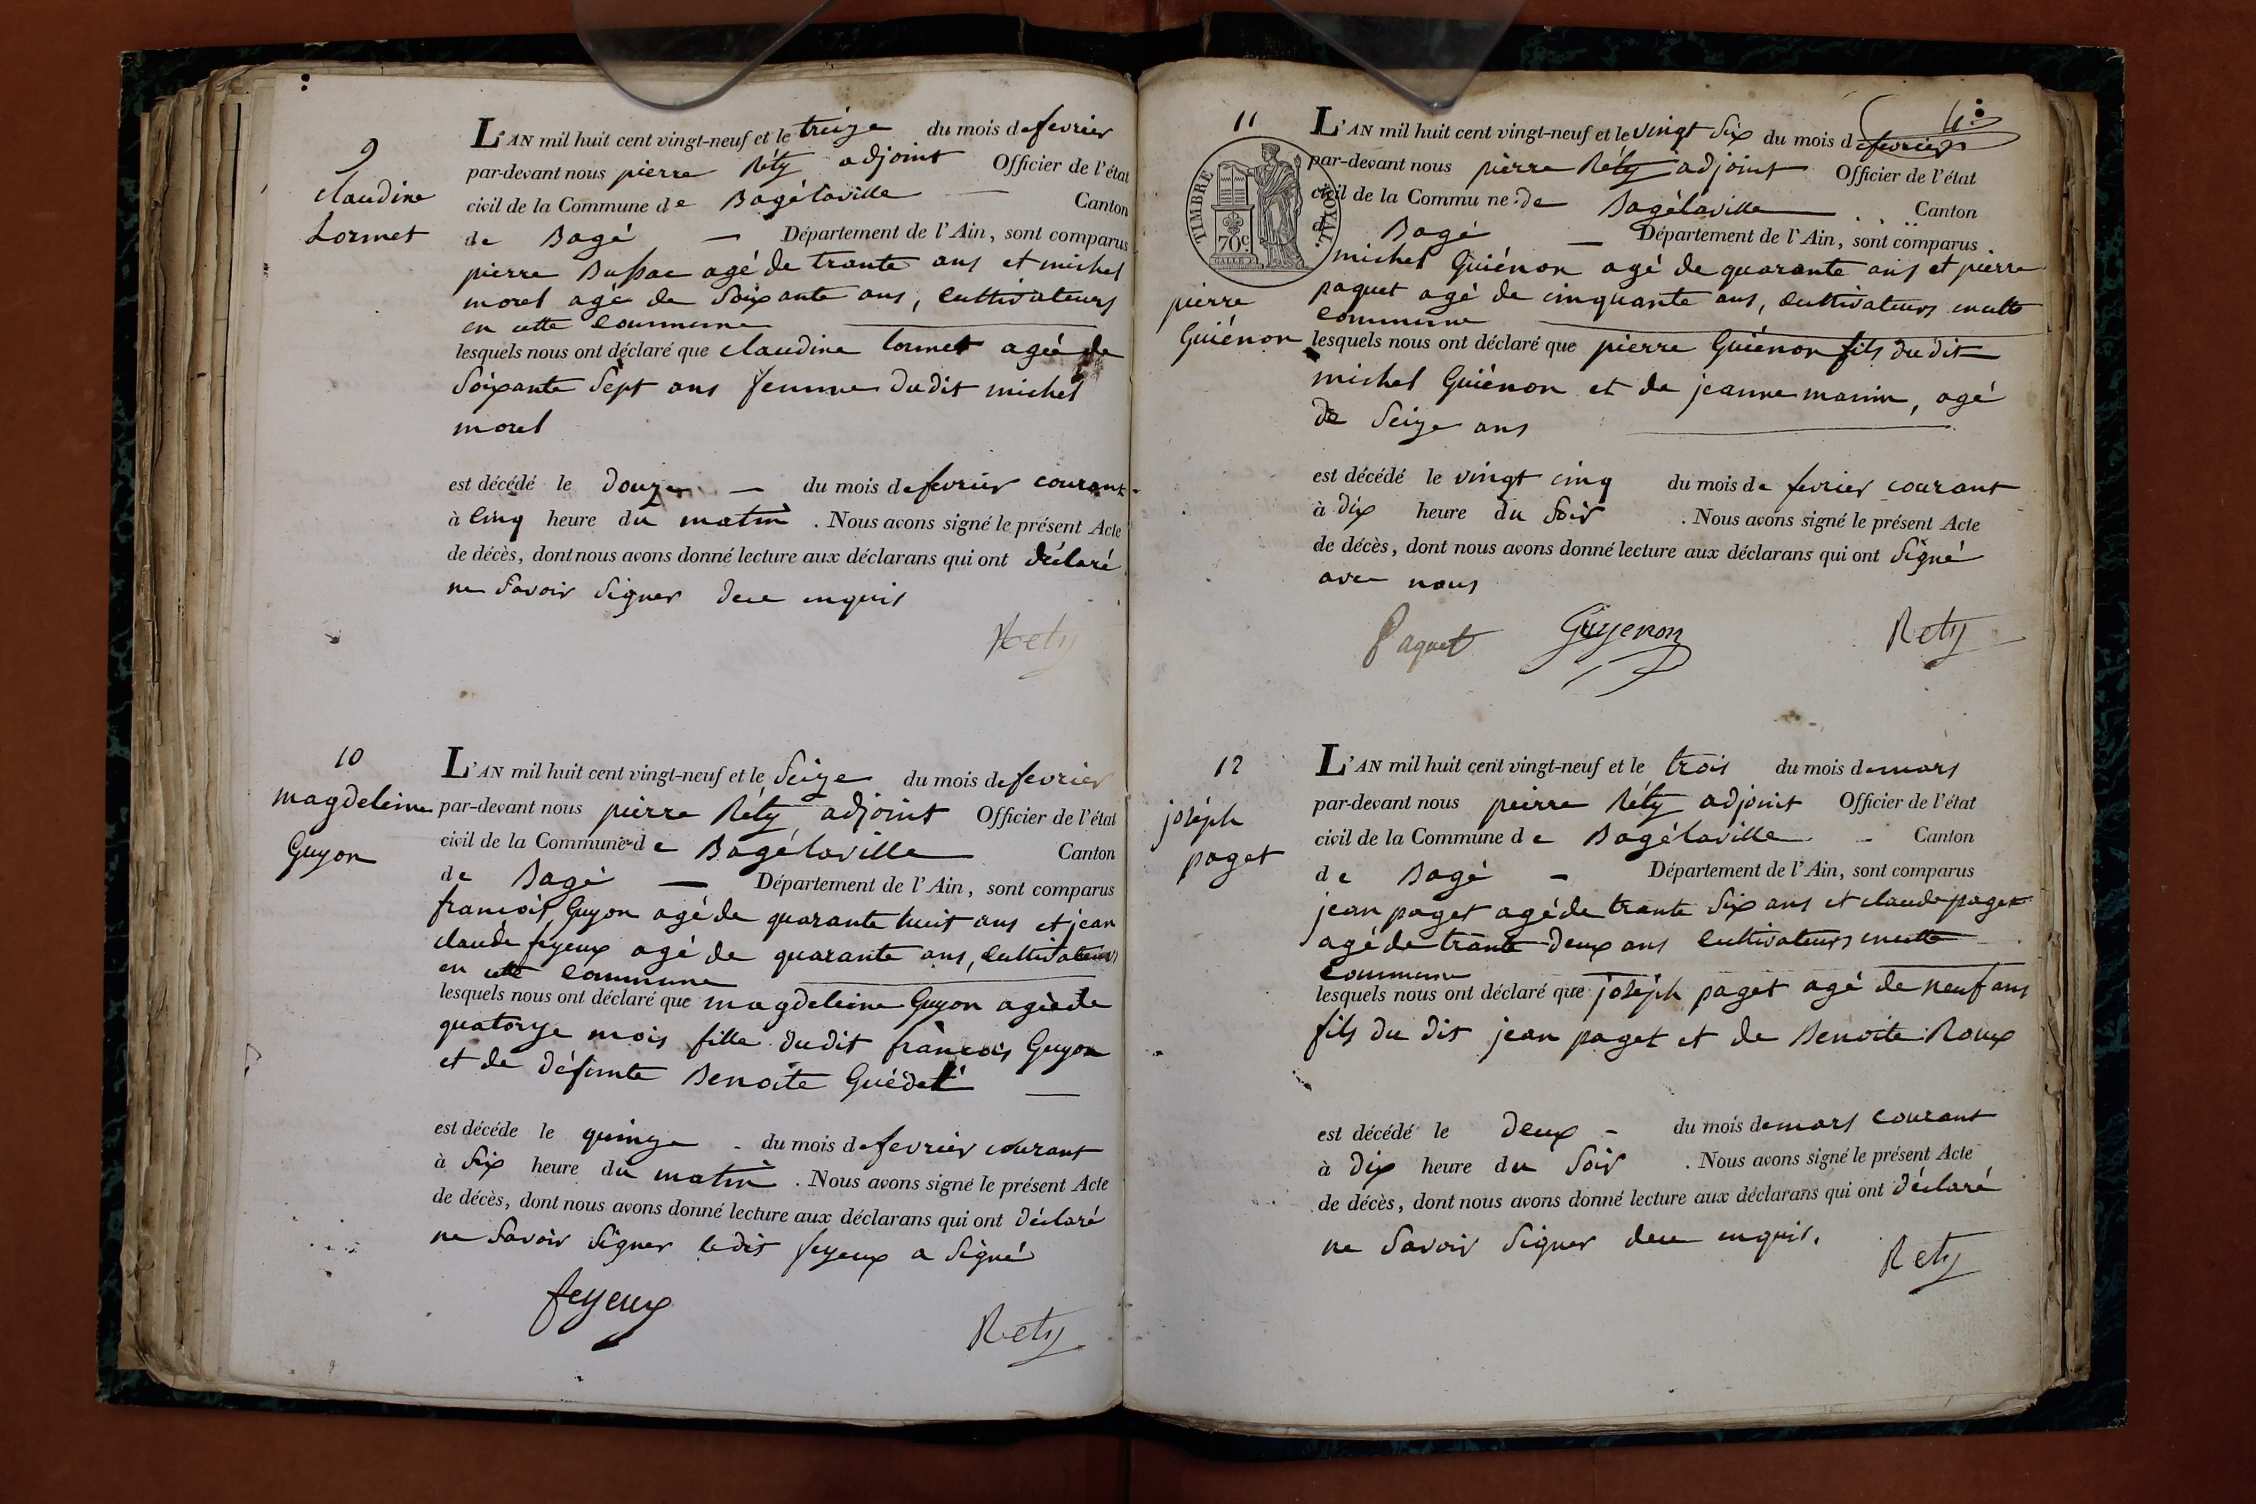 9
claudine
Lormet
L'AN mil huit cent vingt-neuf et le treize du mois de fevrier
par-devant nous pierre Réty adjoint Officier de l'état
civil de la Commune de Bagélaville Canton
de Bagé — Département de l'Ain, sont comparus
pierre agé de trante ans et michel
morel agé de Soixante ans, cultivateurs
en cette commune
lesquels nous ont déclaré que claudine lormet agée de
Soixante Sept ans femme dudit michel
morel
est décédé le douze — du mois de fevrier courant
à cinq heure du matin . Nous avons signé le présent Acte
de décès, dont nous avons donné lecture aux déclarans qui ont déclaré
ne Savoir Signer dece enquis
Rety
10
magdeleine
Guyon
L'AN mil huit cent vingt-neuf et le Seize du mois de fevrier
par-devant nous pierre Réty adjoint Officier de l'état
civil de la Commune de Bagélaville Canton
de Bagé — Département de l'Ain, sont comparus
francois Guyon agé de quarante huit ans et jean
claude feyeux agé de quarante ans, cultivateurs
en cette commune
lesquels nous ont déclaré que magdeleine Guyon agée de
quatorze mois fille dudit francois Guyon
et de défunte Benoite Guédet
est décédé le quinze - du mois de fevrier courant
à Six heure du matin . Nous avons signé le présent Acte
de décès, dont nous avons donné lecture aux déclarans qui ont déclaré
ne Savoir Signer ledit feyeux a Signé
feyeux
Rety
4
11
TIMBRE ROYAL.
70c
pierre
Guiénon
L'AN mil huit cent vingt-neuf et le vingt Six du mois de fevrier
par-devant nous pierre Réty adjoint Officier de l'état
civil de la Commune de Bagélaville Canton
d Bagé — Département de l'Ain, sont comparus
michel Guiénon agé de quarante ans et pierre
paquet agé de cinquante ans, cultivateurs encette
commune
lesquels nous ont déclaré que pierre Guiénon fils dudit
michel Guiénon et de jeanne manin, agé
de Seize ans
est décédé le vingt cinq du mois de fevrier courant
à dix heure du Soir . Nous avons signé le présent Acte
de décès, dont nous avons donné lecture aux déclarans qui ont Signé
avec nous
Paquet Guyenon Rety
12
joséph
paget
L'AN mil huit cent vingt-neuf et le trois du mois de mars
par-devant nous pierre Réty adjoint Officier de l'état
civil de la Commune de Bagélaville - Canton
de Bagé - Département de l'Ain, sont comparus
jean paget agé de trante Six ans et claude paget
agé de trante deux ans cultivateurs encette
commune
lesquels nous ont déclaré que joséph paget agé de neuf ans
fils du dit jean paget et de Benoite Roux
est décédé le deux - du mois de mars courant
à dix heure du Soir . Nous avons signé le présent Acte
de décès, dont nous avons donné lecture aux déclarans qui ont déclaré
ne Savoir Signer dece enquis.
Rety